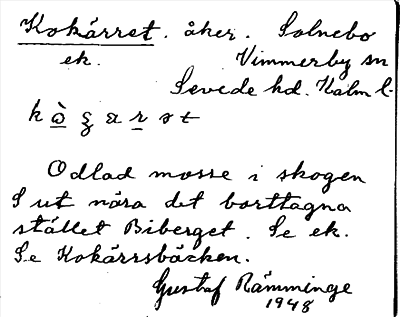 Kokärret. åker. Solnebo
ek. Vimmerby sn
Sevede hd. Kalm l.
Odlad mosse i skogen
S ut nära det borttagna
stället Biberget. Se ek.
Se Kokärrsbäcken.
Gustaf Rämminge
1948